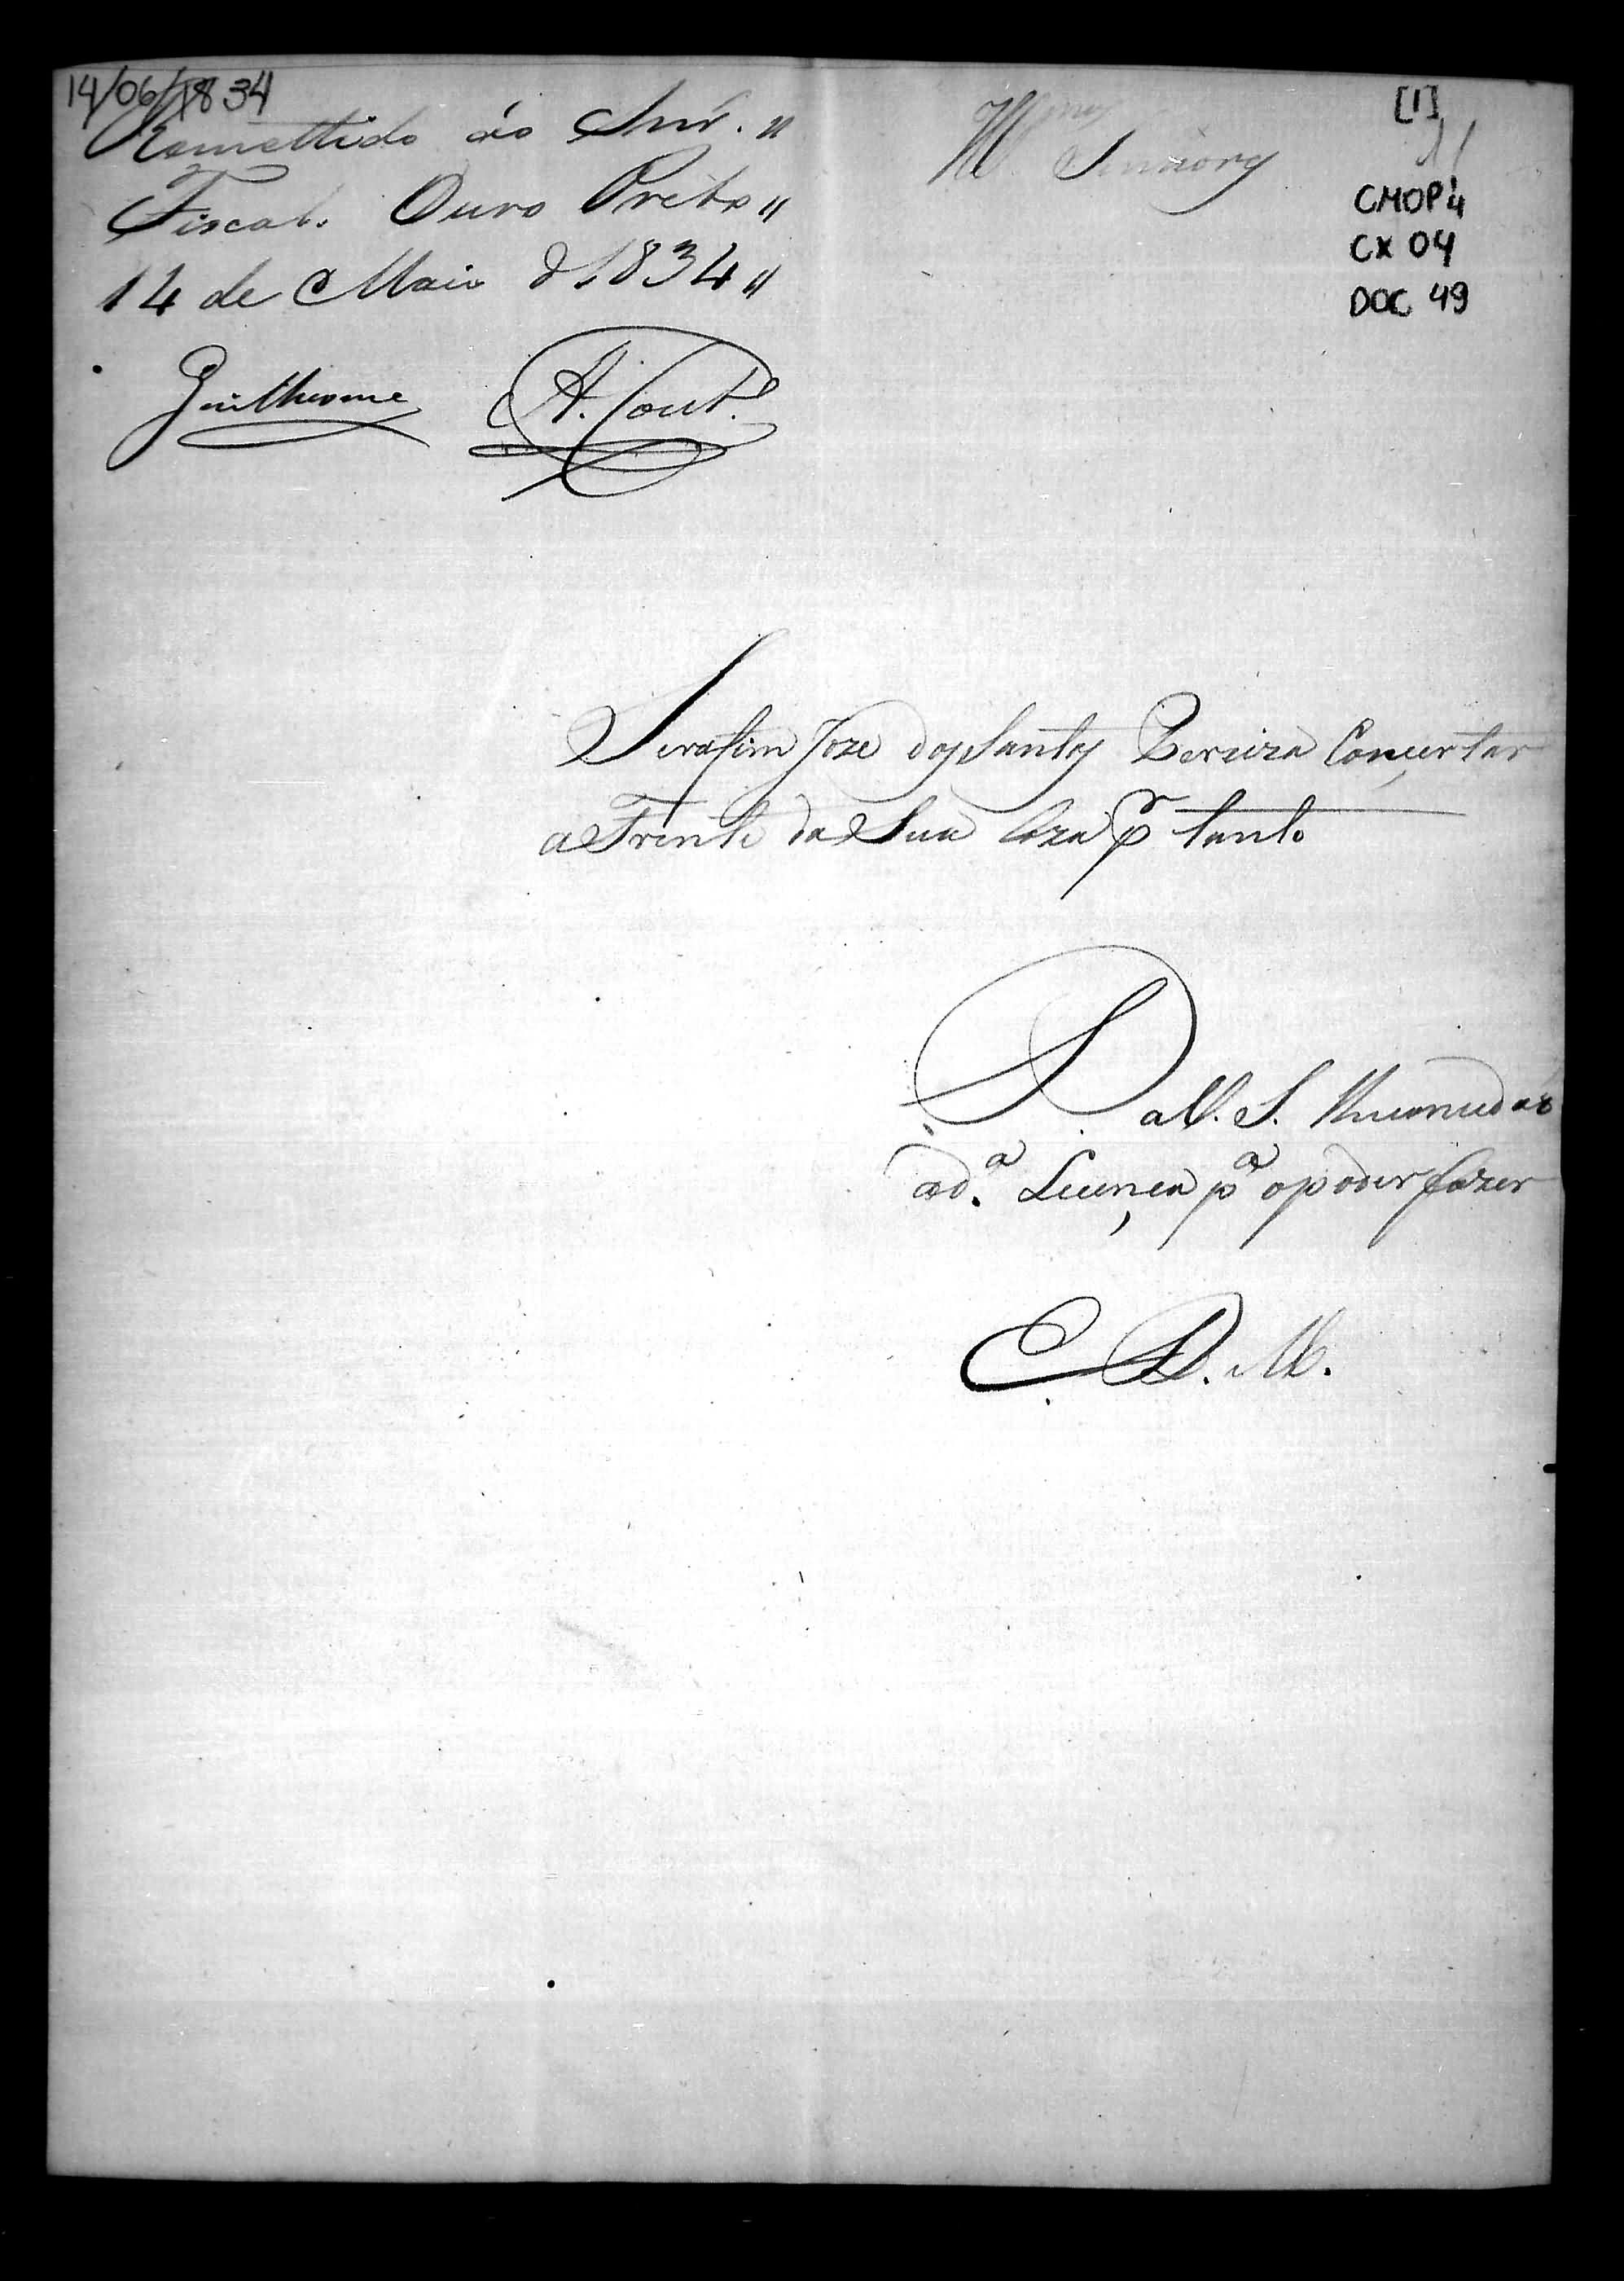 14/06/1834
Remettido ao Snr. "
Fiscal. Ouro Preto "
14 de Maio d 1834 "
Guilherme A. Cout.º
[1]
CMOP 4
CX 04
DOC 49
Ill.mos Senhores
Serafim Joze dos Santos Perciza Concertar
a Frente da Sua Caza P.r tanto
P. a V. S.
a d.ª Licença p.ª o poder fazer
E R. M.